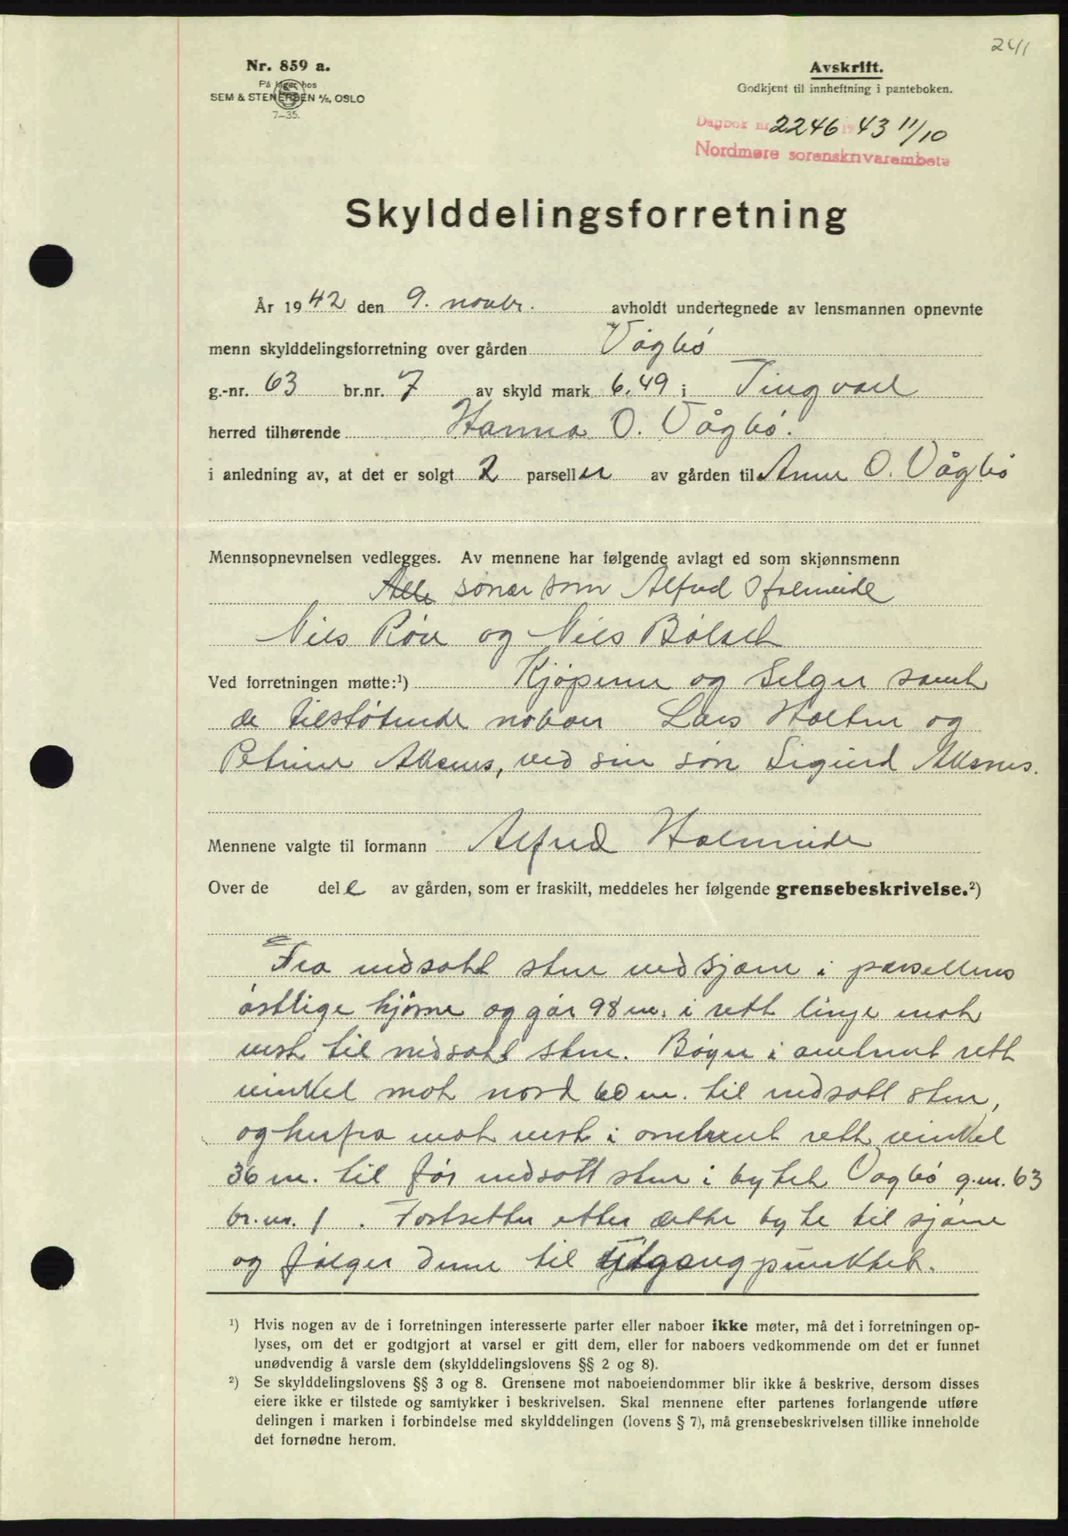 241
Nr. 859 a.
På lager hos
SEM & STENERSEN A/S, OSLO
7–35.
Avskrift.
Godkjent til innheftning i panteboken.
Dagbok nr. 2246 19 43 11/10
Nordmøre sorenskrivarembete
Skylddelingsforretning
År 1942 den 9. novbr. avholdt undertegnede av lensmannen opnevnte
menn skylddelingsforretning over gården Vågbö
g.-nr. 63 br.nr. 7 av skyld mark 6,49 i Tingvoll
herred tilhørende Hanna O. Vågbö.
i anledning av, at det er solgt 2 parseller av gården til Anne O. Vågbö
Mennsopnevnelsen vedlegges. Av mennene har følgende avlagt ed som skjønnsmenn
Alfred Holmeide
Niels Röv og Niels Bölset
Ved forretningen møtte:¹) Kjöperne og Selger samt
de tilstötende naboer Lars Holten og
Petrine Aksnes, ved sin sön Sigurd Aksnes.
Mennene valgte til formann Alfred Holmeide
Over de dele av gården, som er fraskilt, meddeles her følgende grensebeskrivelse.²)
Fra nedsatt sten ved sjøen i parsellens
östlige hjörne og går 98 m. i rett linje mot
vest til nedsatt sten. Böyer i omtrent rett
vinkel mot nord 60 m. til nedsatt sten,
og herfra mot vest i omtrent rett vinkel
36 m. til för nedsatt sten i bytet Vågbö g.nr. 63
br.nr. 1. Fortsetter etter dette byte til sjöen
og fölger denne til utgangpunktet.
¹) Hvis nogen av de i forretningen interesserte parter eller naboer ikke møter, må det i forretningen op-
lyses, om det er godtgjort at varsel er gitt dem, eller for naboers vedkommende om det er funnet
unødvendig å varsle dem (skylddelingslovens §§ 2 og 8).
²) Se skylddelingslovens §§ 3 og 8. Grensene mot naboeiendommer blir ikke å beskrive, dersom disses
eiere ikke er tilstede og samtykker i beskrivelsen. Skal mennene efter partenes forlangende utføre
delingen i marken i forbindelse med skylddelingen (lovens § 7), må grensebeskrivelsen tillike inneholde
det fornødne herom.